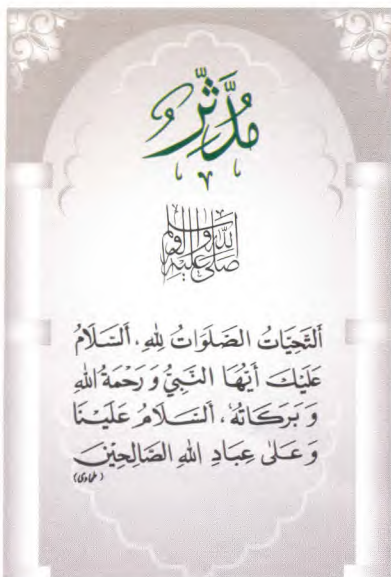 مُدَّثِّرٌ
صلى الله عليه وآله وسلم
اَلتَّحِيَّاتُ الصَّلَوَاتُ لِلهِ، اَلسَّلَامُ
عَلَيْكَ أَيُّهَا النَّبِيُّ وَرَحْمَةُ اللهِ
وَبَرَكَاتُهٗ، اَلسَّلَامُ عَلَيْنَا
وَعَلٰى عِبَادِ اللهِ الصَّالِحِيْنَ
(طحاوی)